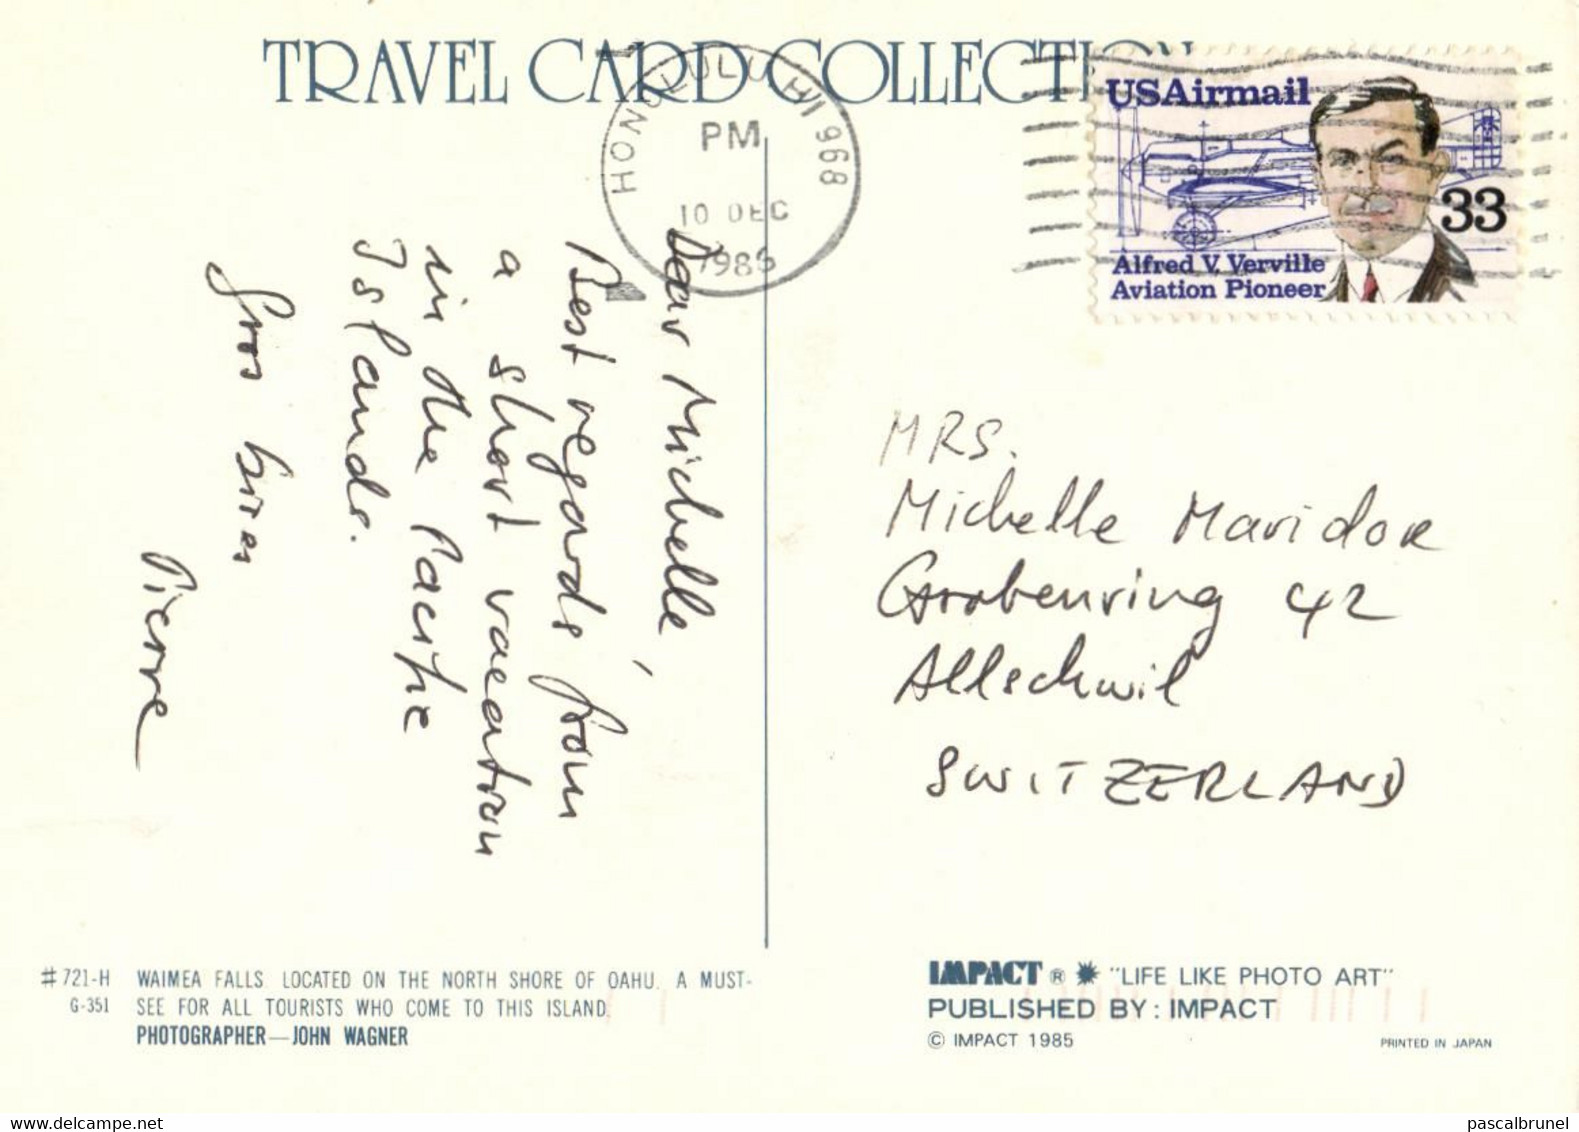 TRAVEL CARD COLLECTION
HONOLULU HI 968
PM
10 DEC
1986
USAirmail
33
Alfred V. Verville
Aviation Pioneer
Dear Michelle,
Best regards from
a short vacation
in the Pacific
Islands.
Gros bises
Pierre
MRS.
Michelle Maridor
Grabenring 42
Allschwil
SWITZERLAND
#721-H WAIMEA FALLS. LOCATED ON THE NORTH SHORE OF OAHU. A MUST-
G-351 SEE FOR ALL TOURISTS WHO COME TO THIS ISLAND.
PHOTOGRAPHER—JOHN WAGNER
IMPACT ® "LIFE LIKE PHOTO ART"
PUBLISHED BY: IMPACT
© IMPACT 1985
PRINTED IN JAPAN
pascalbrunel